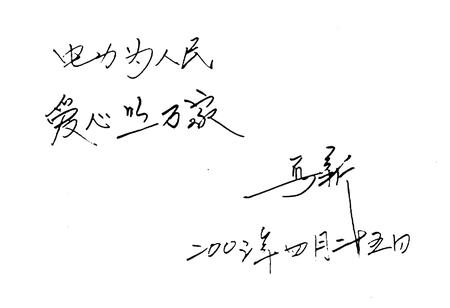 电力为人民
爱心照万家
新
二00三年四月二十五日